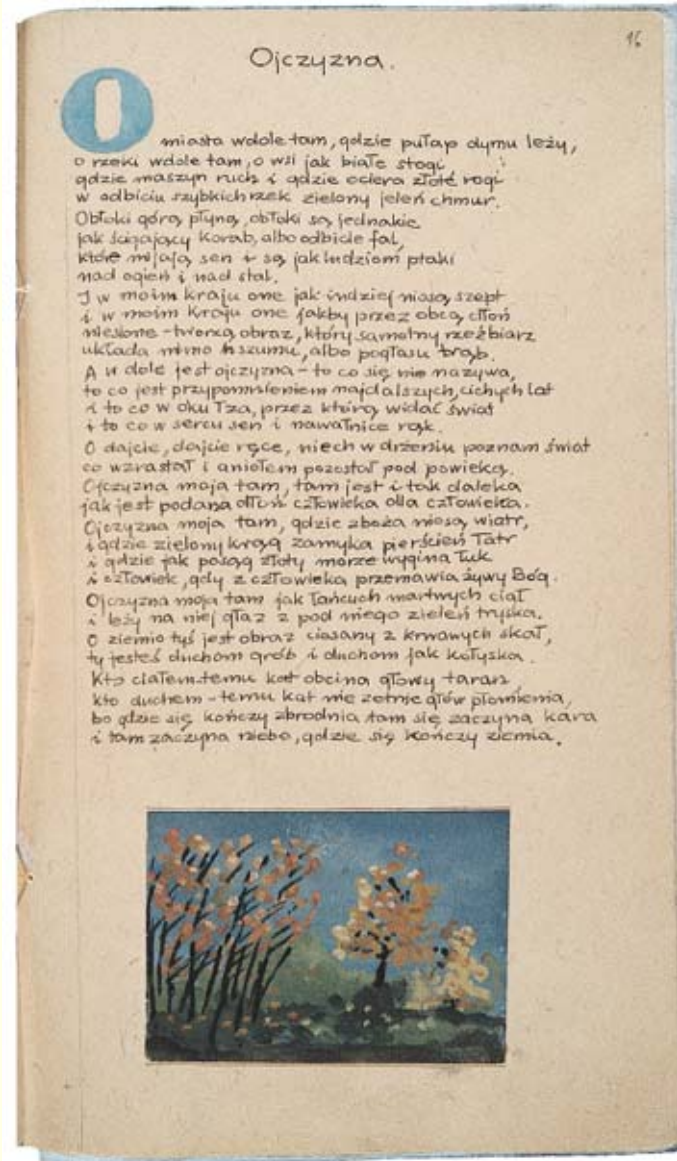 16
Ojczyzna.
O miasta wdole tam, gdzie pułap dymu leży,
o rzeki wdole tam, o wsi jak białe stogi
gdzie maszyn ruch i gdzie ociera złote rogi
w odbiciu szybkich rzek zielony jeleń chmur.
Obłoki górą płyną, obłoki są jednakie
jak ścigający korab, albo odbicie fal,
które mijają sen i są jak ludziom ptaki
nad ogień i nad stal.
I w moim kraju one jak indziej niosą szept
i w moim kraju one jakby przez obcą dłoń
niesione - tworzą obraz, który samotny rzeźbiarz
układa mimo szumu, albo pogłasu trąb.
A w dole jest ojczyzna - to co się nie nazywa,
to co jest przypomnieniem najdalszych, cichych lat
i to co w oku łza, przez którą widać świat
i to co w sercu sen i nawałnice rąk.
O dajcie, dajcie ręce, niech w drżeniu poznam świat
co wzrastał i aniołem pozostał pod powieką.
Ojczyzna moja tam, tam jest i tak daleka
jak jest podana dłoń człowieka dla człowieka.
Ojczyzna moja tam, gdzie zboża niosą wiatr,
i gdzie zielony krąg zamyka pierścień Tatr
i gdzie jak posąg złoty morze wygina łuk
i człowiek, gdy z człowieka przemawia żywy Bóg.
Ojczyzna moja tam jak łańcuch martwych ciał
i leży na niej głaz z pod niego zieleń tryska.
O ziemio tyś jest obraz ciosany z krwawych skał,
ty jesteś duchom grób i duchom jak kołyska.
Kto ciałem - temu kat obcina głowy taran,
kto duchem - temu kat nie zetnie głów płomienia,
bo gdzie się kończy zbrodnia tam się zaczyna kara
i tam zaczyna niebo, gdzie się kończy ziemia.